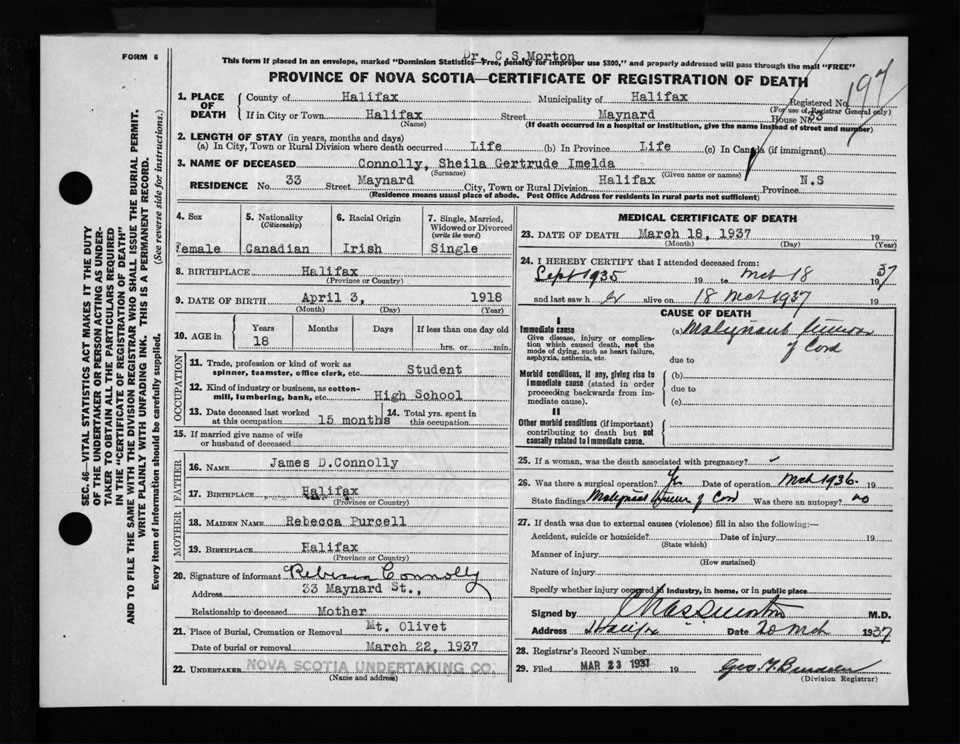 FORM 6
Dr. C.S.Morton
This form if placed in an envelope, marked "Dominion Statistics—Free, penalty for improper use $300," and properly addressed will pass through the mail "FREE"
PROVINCE OF NOVA SCOTIA—CERTIFICATE OF REGISTRATION OF DEATH
197
1. PLACE OF DEATH
County of Halifax Municipality of Halifax Registered No.
(For use of Registrar General only)
If in City or Town Halifax Street Maynard House No. 33
(Name) (If death occurred in a hospital or institution, give the name instead of street and number)
2. LENGTH OF STAY (in years, months and days)
(a) In City, Town or Rural Division where death occurred Life (b) In Province Life (c) In Canada (if immigrant)
3. NAME OF DECEASED Connolly, Sheila Gertrude Imelda
(Surname) (Given name or names)
RESIDENCE No. 33 Street Maynard City, Town or Rural Division Halifax Province N.S
(Residence means usual place of abode. Post Office Address for residents in rural parts not sufficient)
4. Sex 5. Nationality (Citizenship) 6. Racial Origin 7. Single, Married, Widowed or Divorced (write the word)
Female Canadian Irish Single
8. BIRTHPLACE Halifax
(Province or Country)
9. DATE OF BIRTH April 3, 1918
(Month) (Day) (Year)
10. AGE in Years Months Days If less than one day old
18 hrs. or min.
OCCUPATION
11. Trade, profession or kind of work as spinner, teamster, office clerk, etc. Student
12. Kind of industry or business, as cotton-mill, lumbering, bank, etc. High School
13. Date deceased last worked at this occupation 15 months 14. Total yrs. spent in this occupation
15. If married give name of wife or husband of deceased
FATHER
16. NAME James D.Connolly
17. BIRTHPLACE Halifax
(Province or Country)
MOTHER
18. MAIDEN NAME Rebecca Purcell
19. BIRTHPLACE Halifax
(Province or Country)
20. Signature of informant Rebecca Connolly
Address 33 Maynard St.,
Relationship to deceased Mother
21. Place of Burial, Cremation or Removal Mt. Olivet
Date of burial or removal March 22, 1937
22. UNDERTAKER NOVA SCOTIA UNDERTAKING CO.
(Name and address)
MEDICAL CERTIFICATE OF DEATH
23. DATE OF DEATH March 18, 1937 19
(Month) (Day) (Year)
24. I HEREBY CERTIFY that I attended deceased from:
Sept 1935 19 to Mch 18 1937
and last saw her alive on 18 Mch 1937 19
CAUSE OF DEATH
I
Immediate cause (a) Malignant tumor of Cord
Give disease, injury or complication which caused death, not the mode of dying, such as heart failure, asphyxia, asthenia, etc.
due to
Morbid conditions, if any, giving rise to immediate cause (stated in order proceeding backwards from immediate cause).
(b)
due to
(c)
II
Other morbid conditions (if important) contributing to death but not causally related to immediate cause.
25. If a woman, was the death associated with pregnancy?
26. Was there a surgical operation? Yes Date of operation Mch 1936 19
State findings Malignant tumor of Cord Was there an autopsy? no
27. If death was due to external causes (violence) fill in also the following:—
Accident, suicide or homicide? Date of injury 19
(State which)
Manner of injury
(How sustained)
Nature of injury
Specify whether injury occurred in industry, in home, or in public place
Signed by Chas S Morton M.D.
Address Halifax Date 20 Mch 1937
28. Registrar's Record Number
29. Filed MAR 23 1937 19
(Division Registrar)
SEC. 46—VITAL STATISTICS ACT MAKES IT THE DUTY
OF THE UNDERTAKER OR PERSON ACTING AS UNDER-
TAKER TO OBTAIN ALL THE PARTICULARS REQUIRED
IN THE "CERTIFICATE OF REGISTRATION OF DEATH"
AND TO FILE THE SAME WITH THE DIVISION REGISTRAR WHO SHALL ISSUE THE BURIAL PERMIT.
WRITE PLAINLY WITH UNFADING INK. THIS IS A PERMANENT RECORD.
Every item of information should be carefully supplied. (See reverse side for instructions.)